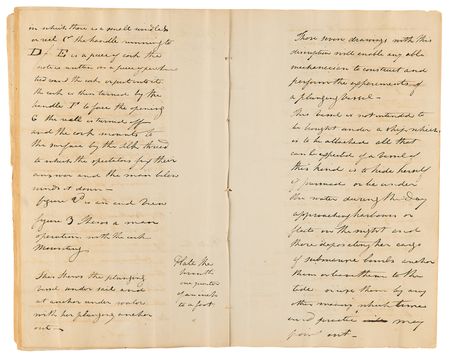 in which there is a small windlass
or reel C the handle running to
D. E is a piece of cork the
notice written on a piece of
tied round the cork or put into it
the cork is then turned by the
handle F to face the opening
G the reel is turned off
and the cork mounts to
the surface by the silk thread
to which the spectators fix their
answer and the man below
winds it down —
figure 2 is an end View
figure 3 Shews a man
operation with the cork
Mounting
This Shews the plunging
vessel under sail and
at anchor under water
with her plunging anchor
out —
Scale the
one quarter
of an inch
to a foot
These seven drawings with this
discription will enable any able
mechanician to construct and
perform the experiments of
a plunging Vessel —
This Vessel is not intended to
be fought under a ship which
is to be attacked all that
can be expected of a Vessel of
this kind is to hide herself
if pursued or be under
the water during the Day
approaching harbours or
fleets in the night and
there depositing her cargo
of submarine bombs anchor
them or leave them to the
tide or use them by any
other means which time
and practice may
point out —